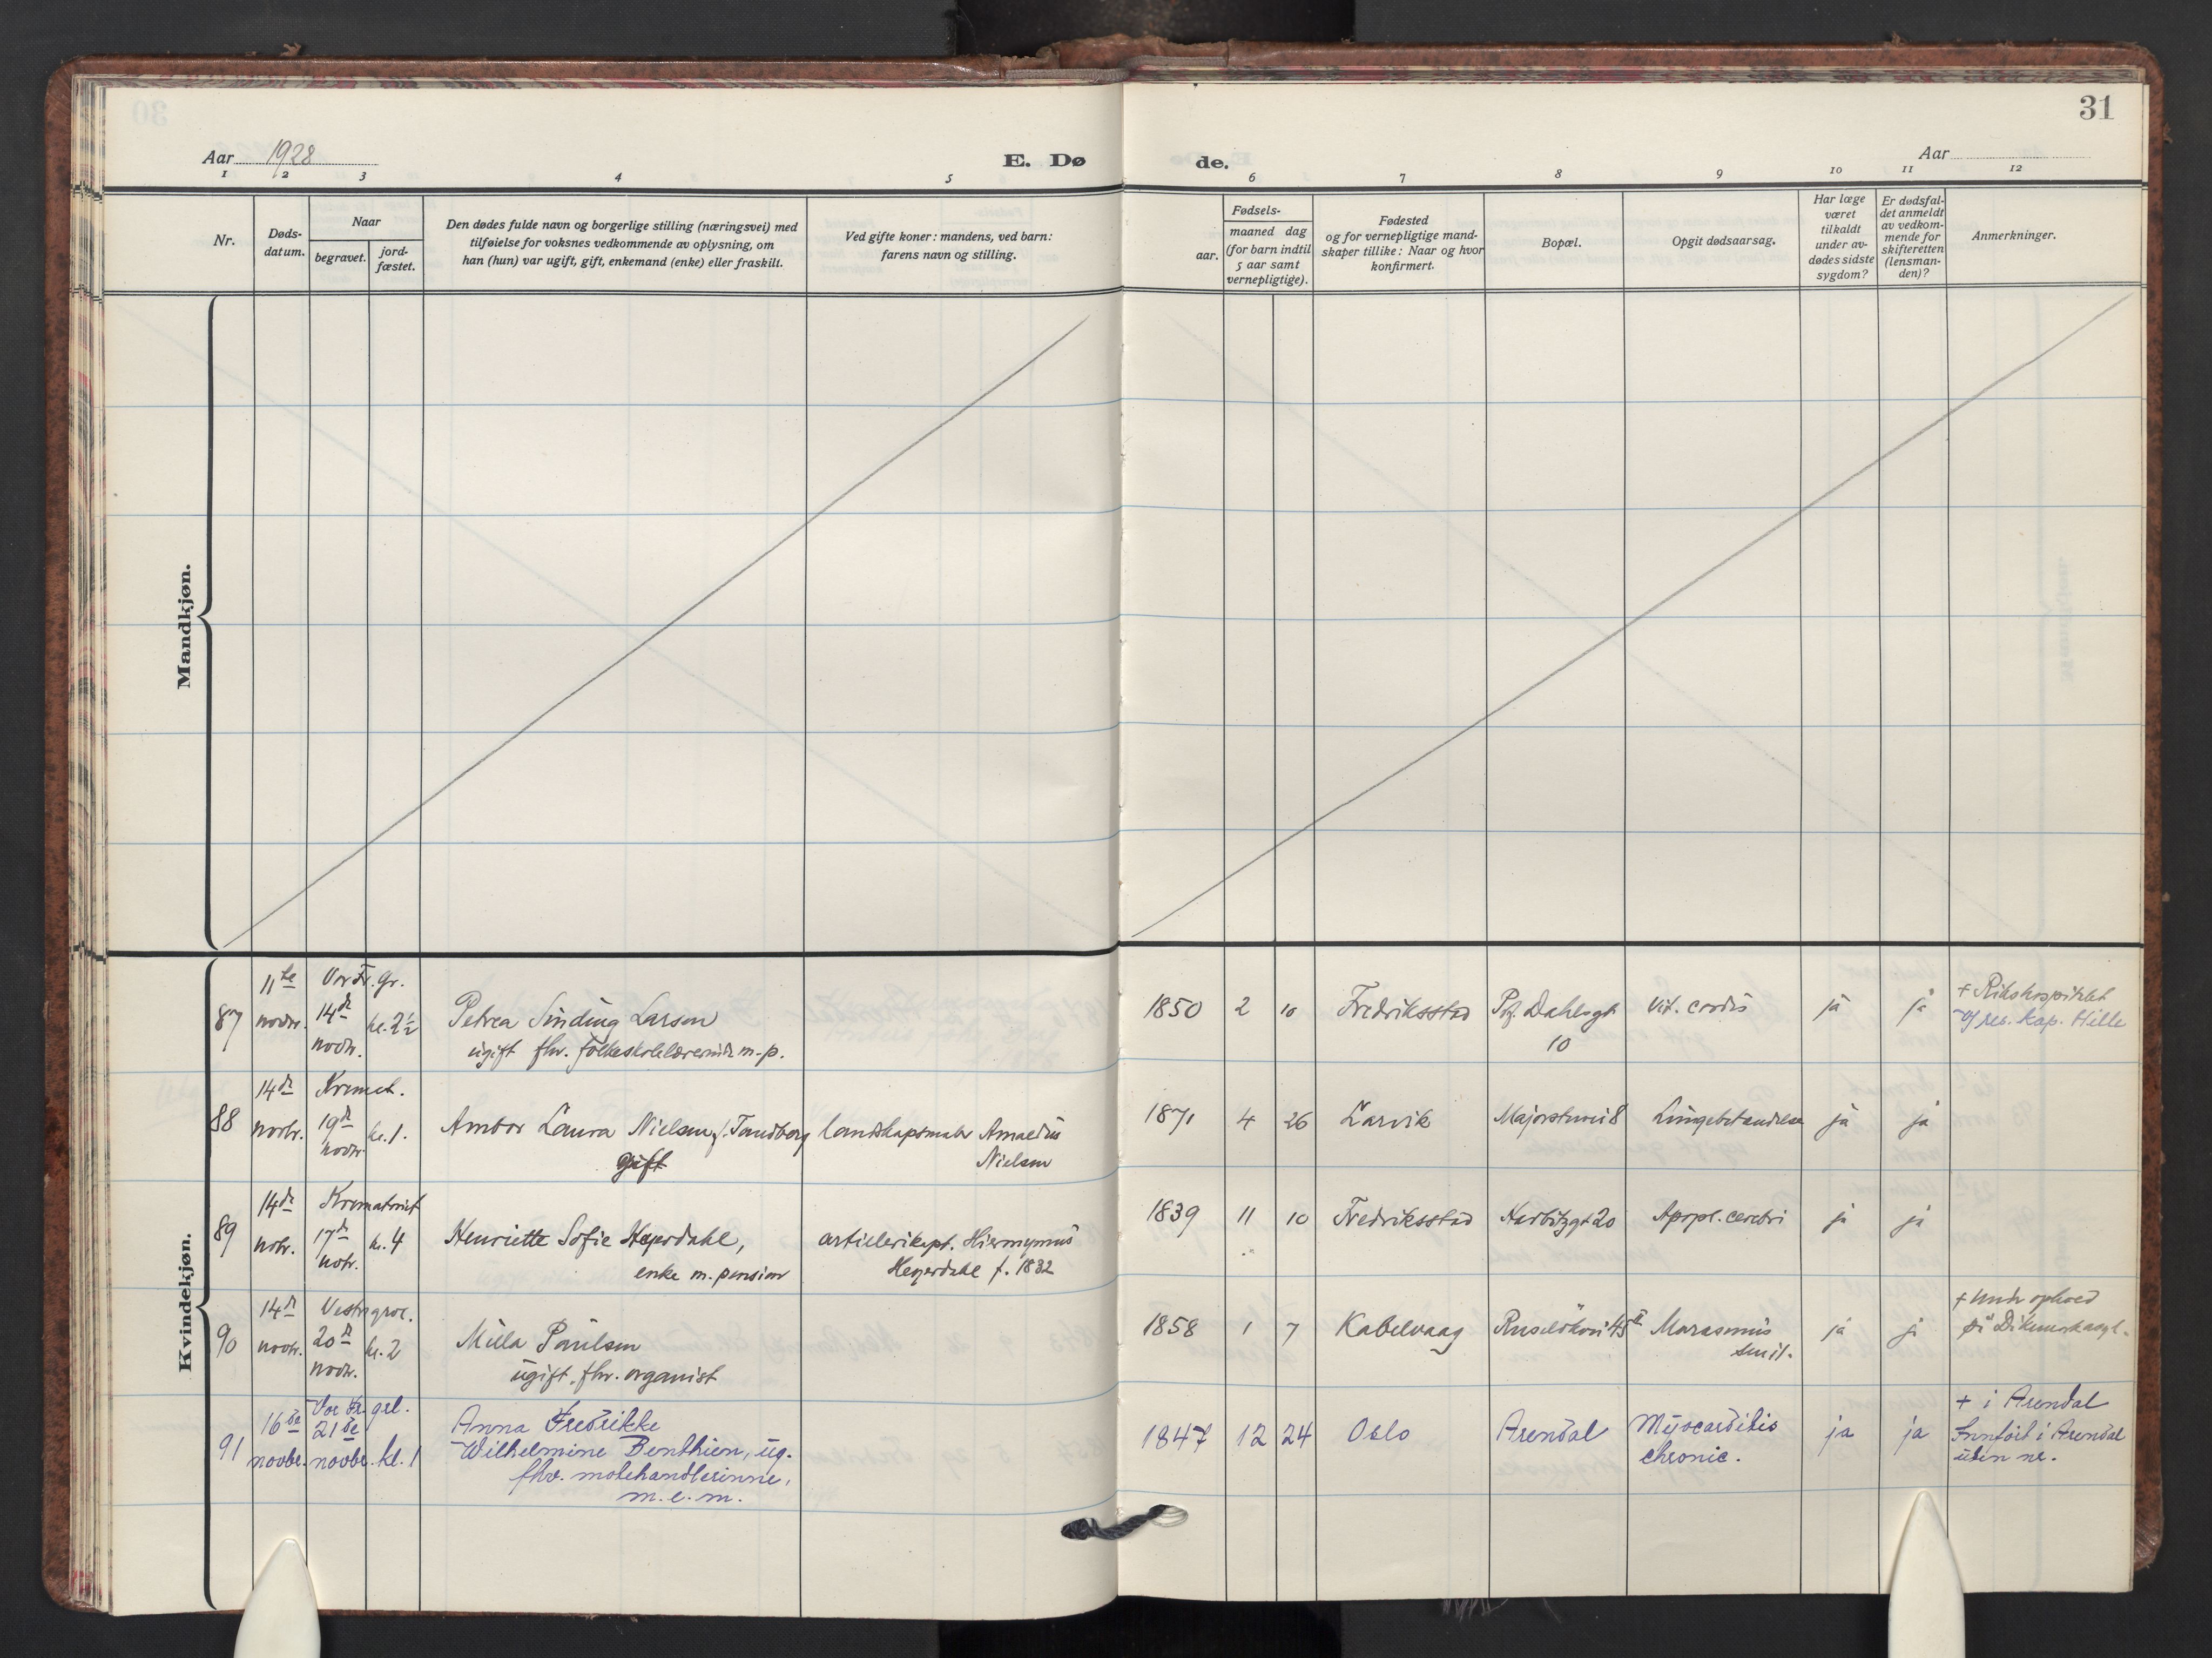 31
Aar 1928
E. Dø
de.
Aar
1 2 3 4 5 6 7 8 9 10 11 12
Nr.
Døds-
datum.
Naar
begravet.
jord-
fæstet.
Den dødes fulde navn og borgerlige stilling (næringsvei) med
tilføielse for voksnes vedkommende av oplysning, om
han (hun) var ugift, gift, enkemand (enke) eller fraskilt.
Ved gifte koner: mandens, ved barn:
farens navn og stilling.
Fødsels-
aar.
maaned dag
(for barn indtil
5 aar samt
vernepligtige).
Fødested
og for vernepligtige mand-
skaper tillike: Naar og hvor
konfirmert.
Bopæl.
Opgit dødsaarsag.
Har læge
været
tilkaldt
under av-
dødes sidste
sygdom?
Er dødsfal-
det anmeldt
av vedkom-
mende for
skifteretten
(lensman-
den)?
Anmerkninger.
Mandkjøn.
Kvindekjøn.
87
11te
novbr.
Vor Fr. gr.
14de
novbr.
kl. 2½
Petrea Sinding Larsen
ugift fhv. folkeskolelærerinde m. p.
1850 2 10
Fredriksstad
Dahlsgt
10
Vit. cordis
ja
ja
+ Rikshospitalet
v/ res. kap. Hille
88
14de
novbr.
Kremat.
19de
novbr.
kl. 1.
Ambor Laura Nielsen f. Tandberg
gift
landskapsmaler Amaldus
Nielsen
1871 4 26
Larvik
Majorstuvei 8
Lungebetændelse
ja
ja
89
14de
nobr.
Krematoriet
17de
nobr.
kl. 4
Henriette Sofie Heyerdahl,
enke m. pension
artillerikapt. Hieronymus
Heyerdahl f. 1832
1839 11 10
Fredriksstad
Harbitzgt 20
Apopl. cerebri
ja
ja
90
14de
novbr.
Vestre grav.
20de
novbr.
kl. 2
Milla Paulsen
ugift, fhv. organist
1858 1 7
Kabelvaag
Ruseløkvei 45 II
Marasmus
senil.
ja
ja
+ under ophold
på Dikemark asyl.
91
16de
novbr.
Vor Fr. grl.
21de
novbr.
kl. 1
Anna Fredrikke
Wilhelmine Benthien, ug.
fhv. motehandlerinne,
m. e. m.
1847 12 24
Oslo
Arendal
Myocarditis
chronic.
ja
ja
+ i Arendal
Innført i Arendal
uten nr.